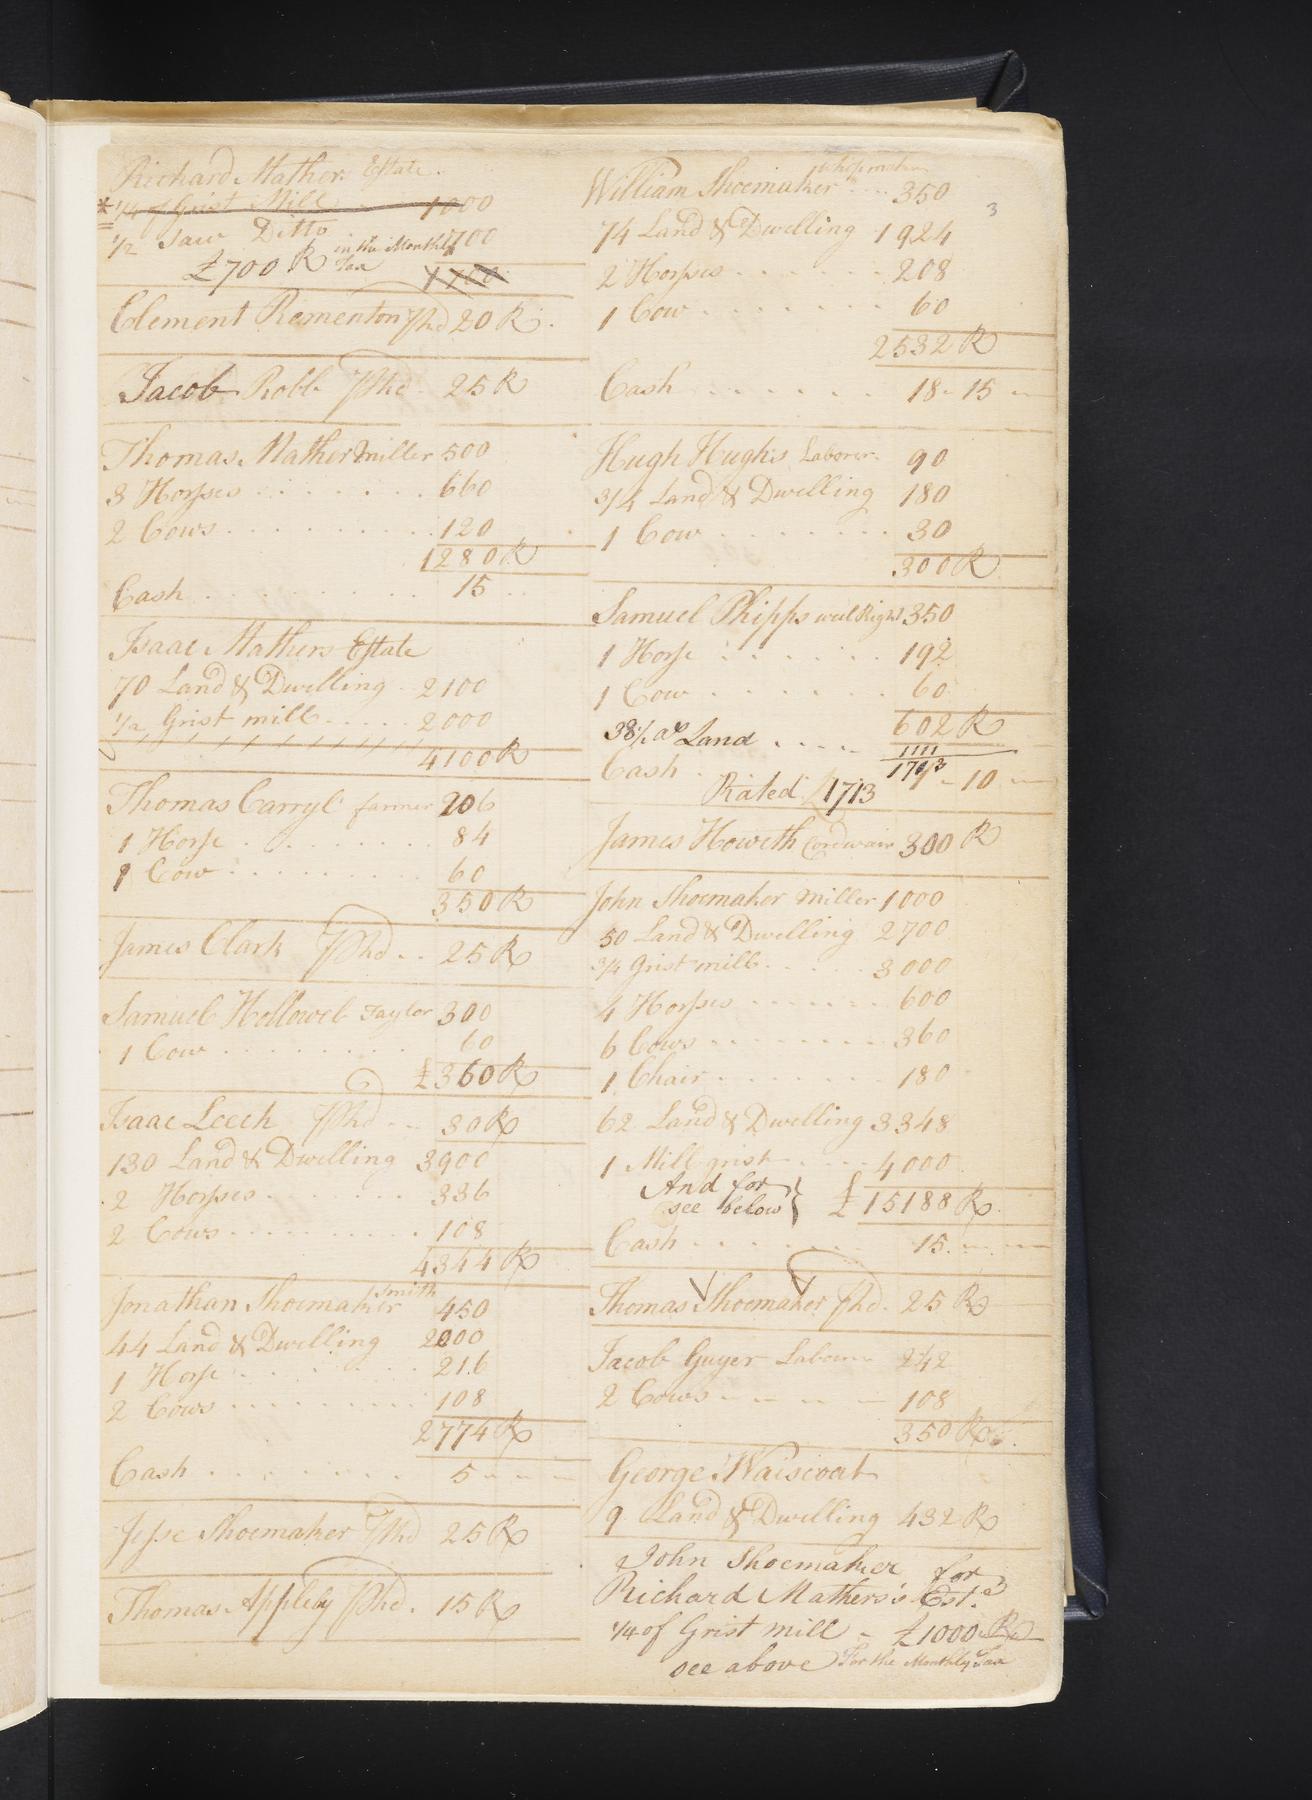 Richard Mathers Estate.
* 1/4 of Grist Mill 1000
1/2 Saw Ditto 700
£700 R in the Monthly Tax
1700
Clement Rementon Phd 20 R.
Jacob Robb Phd 25 R
Thomas Mather Miller 500
3 Horses . . . . . . . 660
2 Cows . . . . . . . . 120
1280 R
Cash . . . . . . . . 15
Isaac Mathers Estate
70 Land & Dwelling . . 2100
1/2 Grist mill . . . . . 2000
4100 R
Thomas Carryl farmer 206
1 Horse . . . . . . . . 84
1 Cow . . . . . . . . . 60
350 R
James Clark Phd . . 25 R
Samuel Hollowel Taylor 300
1 Cow . . . . . . . . . 60
£360 R
Isaac Leech Phd - - 30 R
130 Land & Dwelling 3900
2 Horses . . . . . . . 336
2 Cows . . . . . . . . . 108
4344 R
Jonathan Shoemaker Smith 450
44 Land & Dwelling 2000
1 Horse . . . . . . . 216
2 Cows . . . . . . . . 108
2774 R
Cash . . . . . . . . 5 - - -
Jesse Shoemaker Phd 25 R
Thomas Appleby Phd . 15 R
3
William Shoemaker - - - 350
74 Land & Dwelling 1924
2 Horses . . . . . . . 208
1 Cow . . . . . . . . 60
2532 R
Cash . . . . . . . 18 - 15 -
Hugh Hughs Laborer. 90
3/4 Land & Dwelling 180
1 Cow . . . . . . . . 30
300 R
Samuel Phipps weel Right 350
1 Horse . . . . . . . 192
1 Cow . . . . . . . 60
602 R
Land . . . . 1111
1713
Cash . 7 - 10 -
Rated £1713
James Howeth Cordwain 300 R
John Shoemaker Miller 1000
50 Land & Dwelling 2700
3/4 Grist mill . . . . . 3000
4 Horses - - - - - - 600
6 Cows - - - - - - - 360
1 Chair - - - - - - - 180
62 Land & Dwelling 3348
1 Mill grist - - - - 4000
And for
see below } £15188 R
Cash . . . . . . . 15 - - -
Thomas Shoemaker Phd. 25 R
Jacob Guyer Laborer 242
2 Cows - - - - - 108
350 R
George Waiscoat
9 Land & Dwelling 432 R
John Shoemaker for
Richard Mathers's Est.e
1/4 of Grist mill - £1000 R
see above For the Monthly Tax